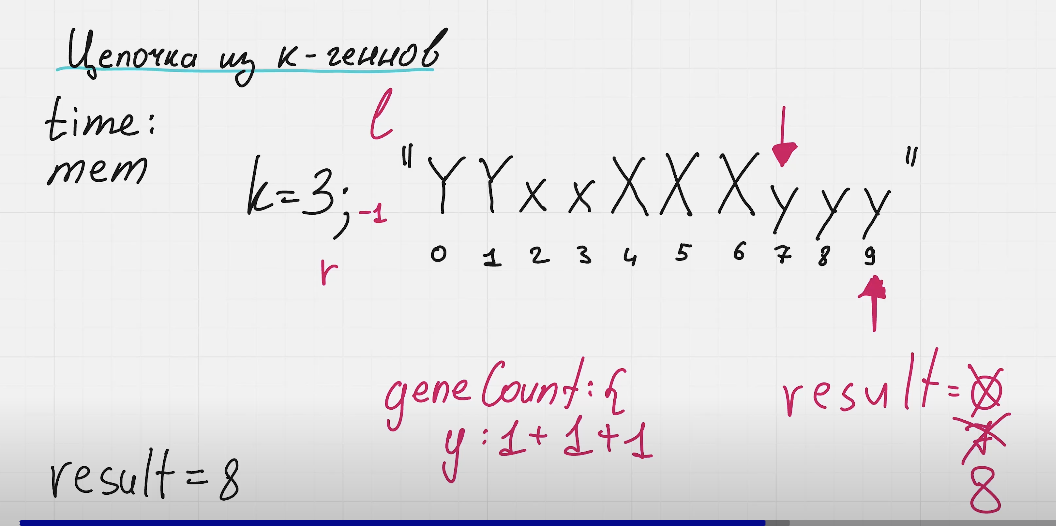 Цепочка из k-генов
time:
mem
l
k=3;
-1
"YYxxXXXyyy"
0 1 2 3 4 5 6 7 8 9
r
geneCount:{
y:1+1+1
result=0
7
8
result=8